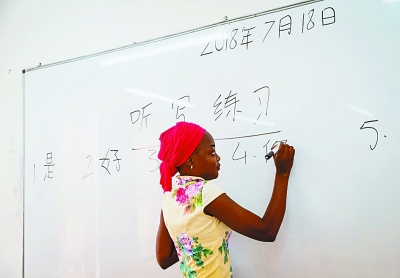 2018年7月18日
听写练习
1是 2好 3 4. 5.